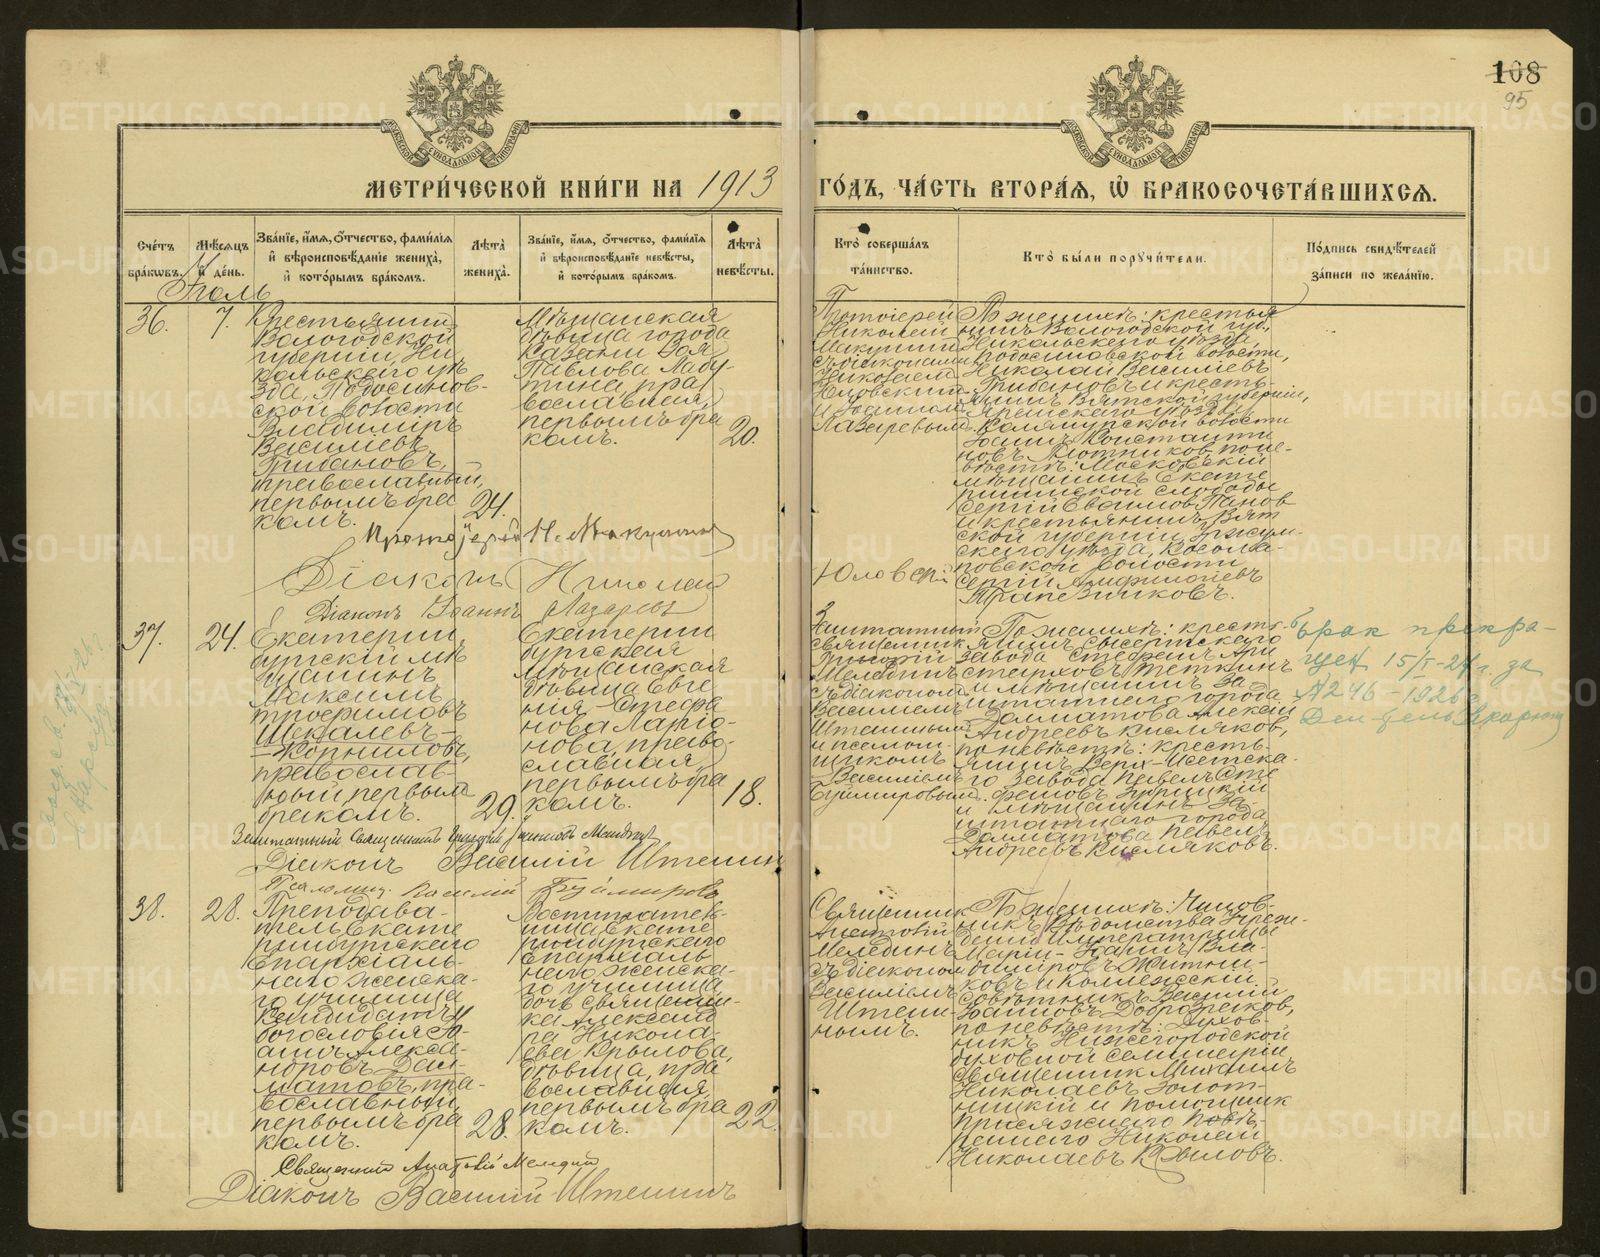 108
95
МЕТРИЧЕСКОЙ КНИГИ НА 1913 ГОДЪ, ЧАСТЬ ВТОРАЯ, Ѡ БРАКОСОЧЕТАВШИХСЯ.
Счетъ браковъ.
Мѣсяцъ и день.
Званіе, имя, отчество, фамилія и вѣроисповѣданіе жениха, и которымъ бракомъ.
Лѣта жениха.
Званіе, имя, отчество, фамилія и вѣроисповѣданіе невѣсты, и которымъ бракомъ.
Лѣта невѣсты.
Кто совершалъ таинство.
Кто были поручители.
Подпись свидѣтелей записи по желанію.
Іюль
36.
7.
Крестьянинъ
Вологодской
губерніи, Ни
кольскаго уѣ
зда, Подосинов-
ской волости
Владимиръ
Василіевъ
Грибановъ,
православный,
первымъ бра
комъ.
24.
Мѣщанская
дѣвица города
Казани Зоя
Павлова Лабу-
тина, пра
вославная,
первымъ бра
комъ.
20.
Протоіерей
Николай
Макушин
съ діаконами
Николаемъ
Юловскимъ
и Іоанномъ
Лазаревымъ
По женихѣ: крестья
нинъ Вологодской губ.,
Никольскаго уѣзда,
Подосиновской волости,
Николай Василіевъ
Грибановъ и кресть-
янинъ Вятской губерніи,
Яранскаго уѣзда,
волости
Іоаннъ Константи
новъ Плотников, по не-
вѣстѣ: Московскій
мѣщанинъ Екате
рининской слободы
Сергій Ефимов Панов
и крестьянинъ Вят
ской губерніи, Уржум-
скаго уѣзда, Косола-
повской волости
Сергій Анфилофіевъ
Трапезниковъ.
Протоіерей Н. Макушин
Діаконъ Николай Юловскій
Діаконъ Іоаннъ Лазаревъ
37.
24.
Екатерин
бургскій мѣ
щанинъ
Максимъ
Трофимовъ
Шекалевъ-
Корниловъ,
православ-
ный первым
бракомъ.
29.
Екатерин
бургская
Мѣщанская
дѣвица Евге
нія Стефа
нова Ларіо-
нова, право-
славная,
первымъ бра
комъ.
18.
Заштатный
священник
Григорій
Мелединъ
съ діакономъ
Василіемъ
Штенинымъ
и псалом-
щикомъ
Василіемъ
Буймировымъ.
По женихѣ: кресть-
янинъ Сысертскаго
завода Стефанъ Ари
старховъ Теткинъ
и мѣщанинъ за
штатнаго города
Далматова Алексій
Андреевъ Кисляковъ,
по невѣстѣ: кресть-
янинъ Верх-Исетска-
го завода Павелъ Сте
фановъ
и мѣщанинъ за-
штатнаго города
Далматова Павелъ
Андреевъ Кисляковъ.
Брак прекра-
щен 15/I-24 г. за
№246-1926
Заштатный Священникъ Григорій Меледин
Діаконъ Василій Штенин
Псаломщ. Василій Буймировъ
38.
28.
Преподава-
тель Екате
ринбургскаго
Епархіаль-
наго женска-
го училища
Кандидатъ
богословія Іо-
аннъ Алекса-
ндровъ Дал-
матовъ, пра-
вославный,
первымъ бра
комъ.
28.
Воспитатель
ница Екате
ринбургскаго
Епархіаль
наго женска-
го училища
дочь священни-
ка Александ
ра Никола-
ева Крылова,
дѣвица, пра
вославная,
первымъ бра
комъ.
22.
Священник
Анатолій
Мелединъ
съ діакономъ
Василіемъ
Штени
нымъ.
По женихѣ: Чинов-
никъ Вѣдомства Учреж-
деній Императрицы
Маріи Іоаннъ Вла-
димировъ Житни-
ковъ и Коллежскій
Совѣтникъ Василій
Іоанновъ Добролюбов,
по невѣстѣ: Духов-
никъ Нижегородской
духовной семинаріи
священник Михаилъ
Николаевъ Золот-
ницкій и помощник
присяжнаго повѣ-
реннаго Николай
Николаевъ Крыловъ.
Священник Анатолій Меледин
Діаконъ Василій Штенинъ
METRIKI.GASO-URAL.RU